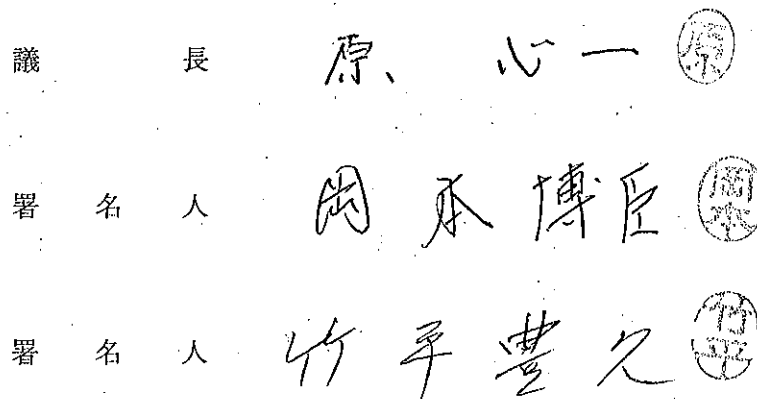 議長 原 心一 原
署名人 岡本博臣 岡本
署名人 竹平豊久 竹平